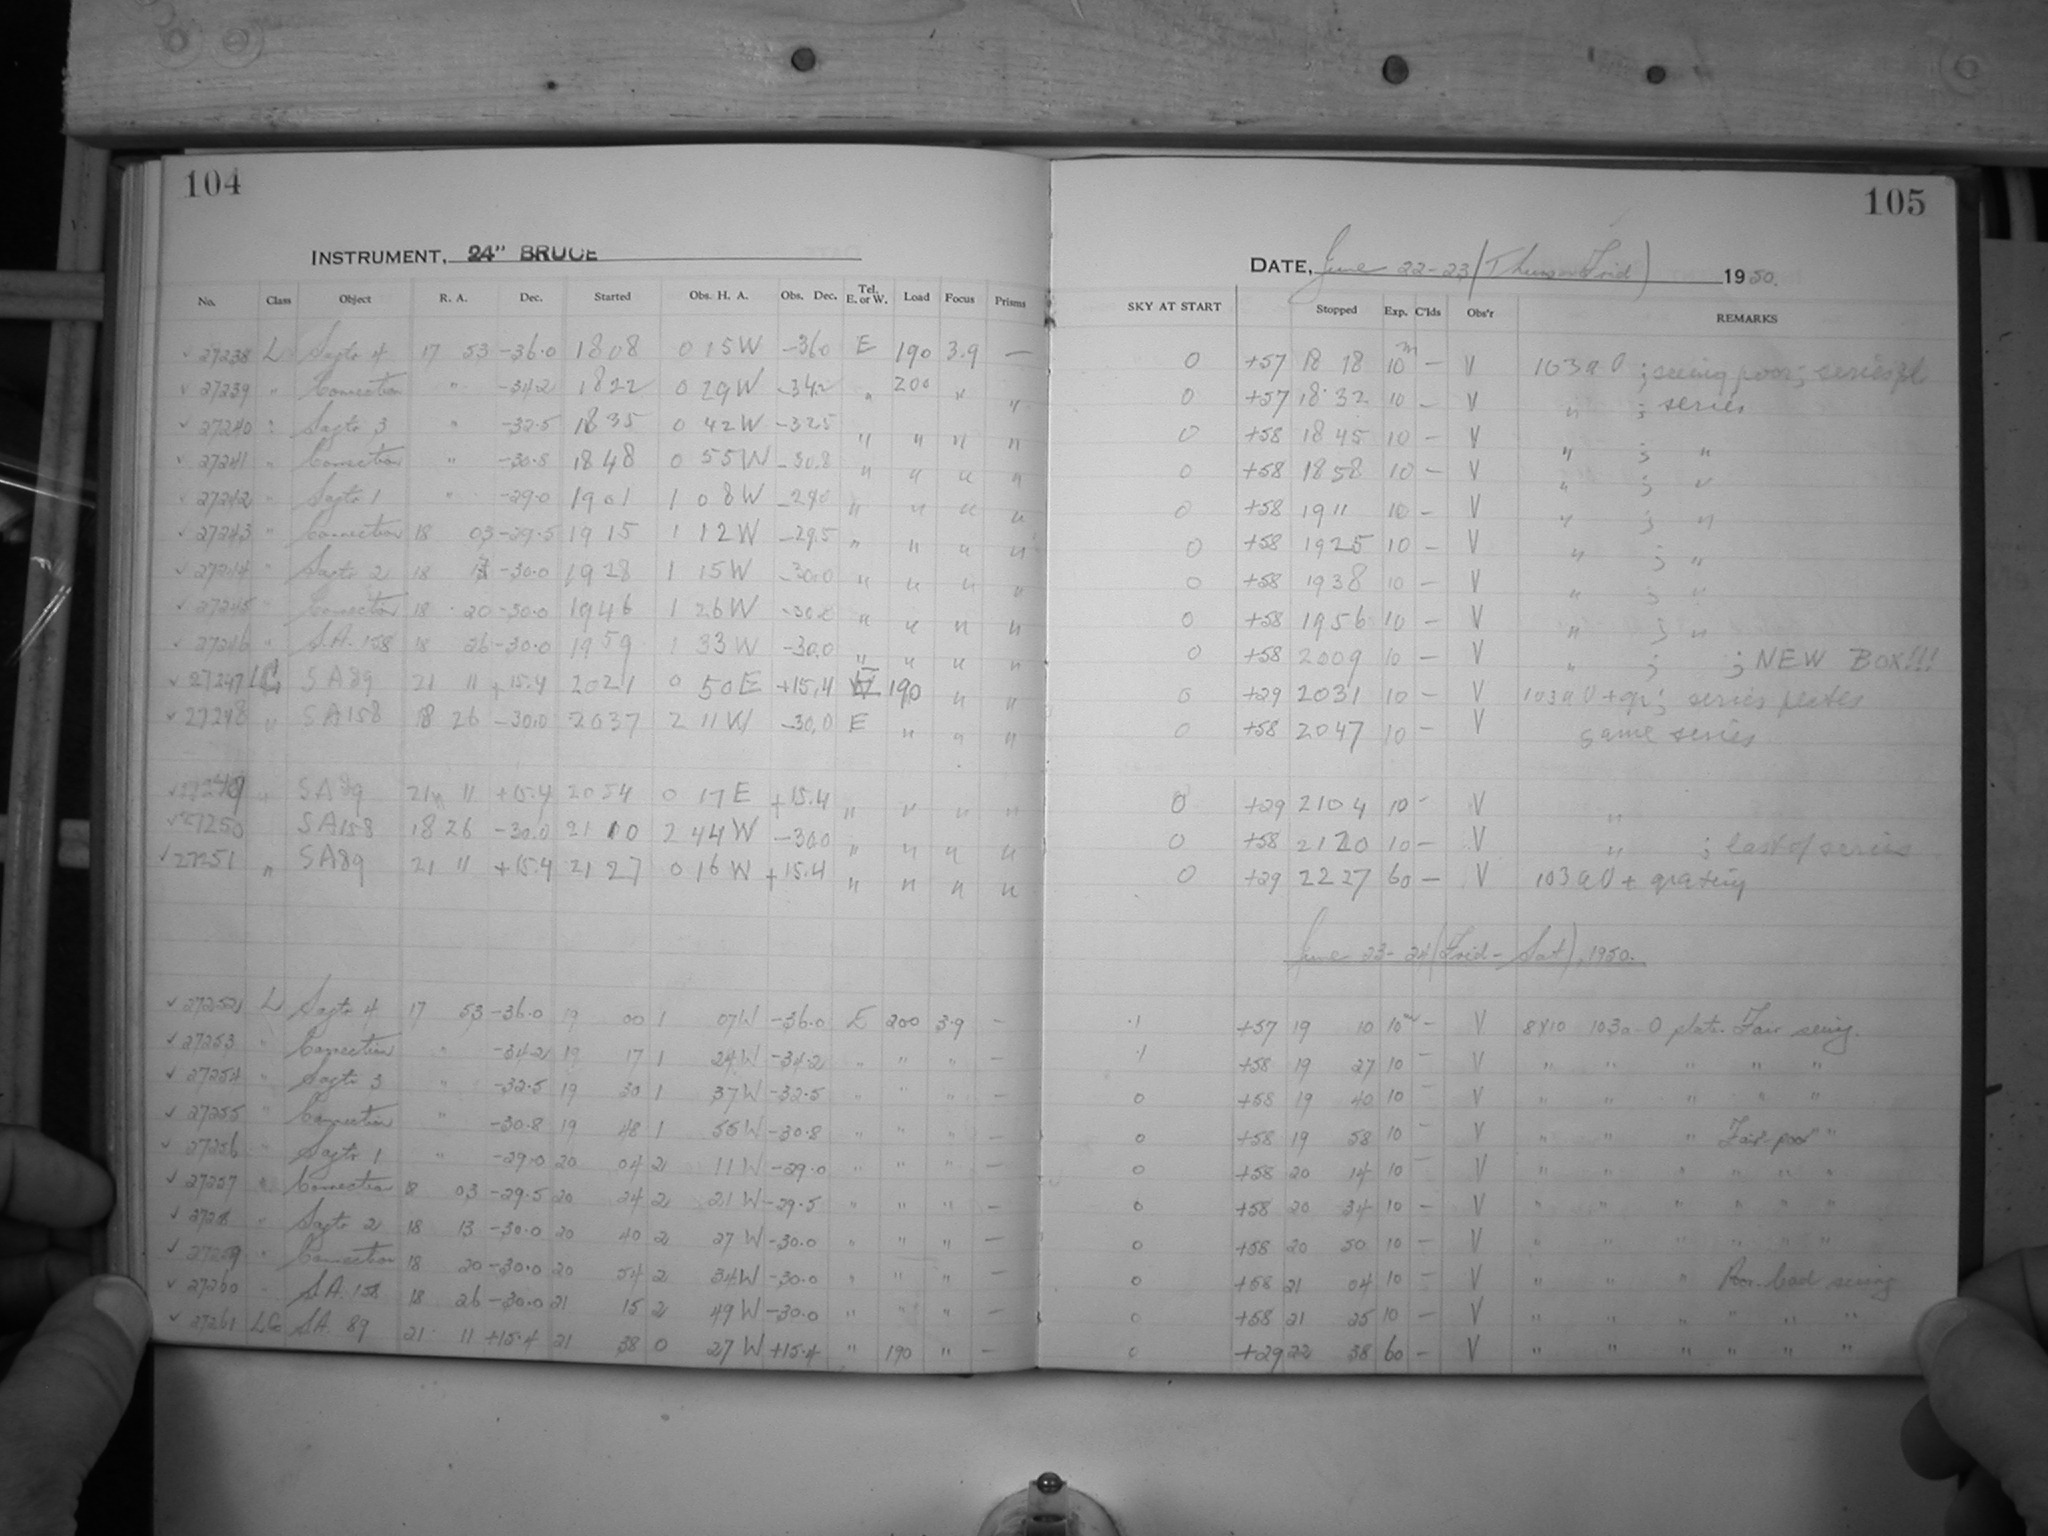 104
INSTRUMENT, 24" BRUCE
No. Class Object R. A. Dec. Started Obs. H. A. Obs. Dec. Tel. E. or W. Load Focus Prisms
27238 L Sagtr 4 17 53 -36.0 1808 0 15W -36.0 E 190 3.9 —
27239 " Connection " -34.2 1822 0 29W -34.2 " 200 " "
27240 " Sagtr 3 " -32.5 1835 0 42W -32.5 " " " "
27241 " Connection " -30.8 1848 0 55W -30.8 " " " "
27242 " Sagtr 1 " -29.0 1901 1 08W -29.0 " " " "
27243 " Connection 18 03 -29.5 1915 1 12W -29.5 " " " "
27244 " Sagtr 2 18 13 -30.0 1928 1 15W -30.0 " " " "
27245 " Connection 18 20 -30.0 1946 1 26W -30.0 " " " "
27246 " S.A. 158 18 26 -30.0 1959 1 33W -30.0 " " " "
27247 LG SA89 21 11 +15.4 2021 0 50E +15.4 190 " "
27248 " SA158 18 26 -30.0 2037 2 11W -30.0 E " " "
27249 " SA89 21 11 +15.4 2054 0 17E +15.4 " " " "
27250 SA158 18 26 -30.0 2110 2 44W -30.0 " " " "
27251 " SA89 21 11 +15.4 2127 0 16W +15.4 " " " "
27252 L Sagtr 4 17 53 -36.0 19 00 1 07W -36.0 E 200 3.9 —
27253 " Connection " -34.2 19 17 1 24W -34.2 " " " —
27254 " Sagtr 3 " -32.5 19 30 1 37W -32.5 " " " —
27255 " Connection " -30.8 19 48 1 55W -30.8 " " " —
27256 " Sagtr 1 " -29.0 20 04 2 11W -29.0 " " " —
27257 " Connection 18 03 -29.5 20 24 2 21W -29.5 " " " —
27258 " Sagtr 2 18 13 -30.0 20 40 2 27W -30.0 " " " —
27259 " Connection 18 20 -30.0 20 54 2 34W -30.0 " " " —
27260 " S.A. 158 18 26 -30.0 21 15 2 49W -30.0 " " " —
27261 LG S.A. 89 21 11 +15.4 21 38 0 27W +15.4 " 190 " —
105
DATE, June 22-23 (Thurs-Frid) 1950.
SKY AT START Stopped Exp. C'lds Obs'r REMARKS
0 +57 18 18 10m — V 103aO ; seeing poor; series pl
0 +57 18 32 10 — V " ; series
0 +58 1845 10 — V " ; "
0 +58 1858 10 — V " ; "
0 +58 1911 10 — V " ; "
0 +58 1925 10 — V " ; "
0 +58 1938 10 — V " ; "
0 +58 1956 10 — V " ; "
0 +58 2009 10 — V " ; ; NEW BOX!!!
0 +29 2031 10 — V 103aO+gr; series plates
0 +58 2047 10 — V same series
0 +29 2104 10 — V "
0 +58 2120 10 — V " ; last of series
0 +29 2227 60 — V 103aO + grating
June 23-24 (Frid-Sat), 1950.
.1 +57 19 10 10m — V 8x10 103a-O plate. Fair seeing.
.1 +58 19 27 10 — V " " " " "
0 +58 19 40 10 — V " " " " "
0 +58 19 58 10 — V " " " Fair-poor "
0 +58 20 14 10 — V " " " " "
0 +58 20 34 10 — V " " " " "
0 +58 20 50 10 — V " " " " "
0 +58 21 04 10 — V " " " Poor-bad seeing
0 +58 21 25 10 — V " " " " "
0 +29 22 38 60 — V " " " " "